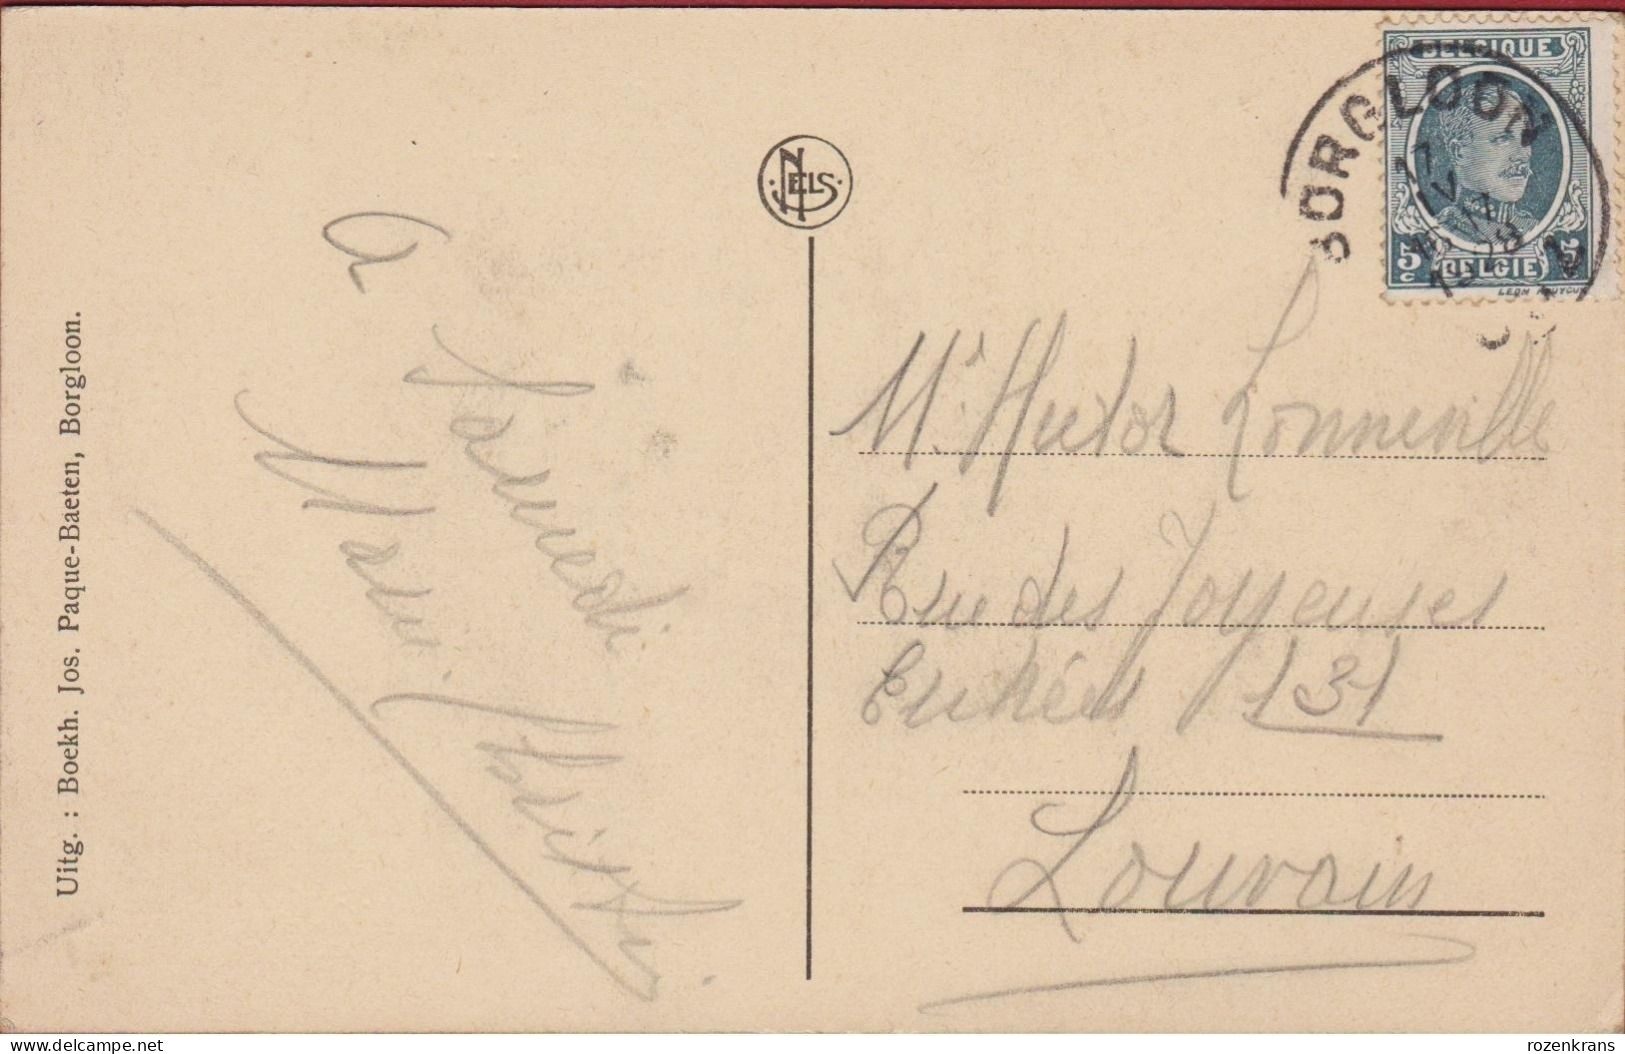 à
Samedi
Marie
Uitg. : Boekh. Jos. Paque-Baeten, Borgloon.
NELS
BELGIQUE
5 c
BELGIE
BORGLOON
17 IV
1928
Mr Hector Lonneville
Rue des Joyeuses
Entrées 131
Louvain
rozenkrans